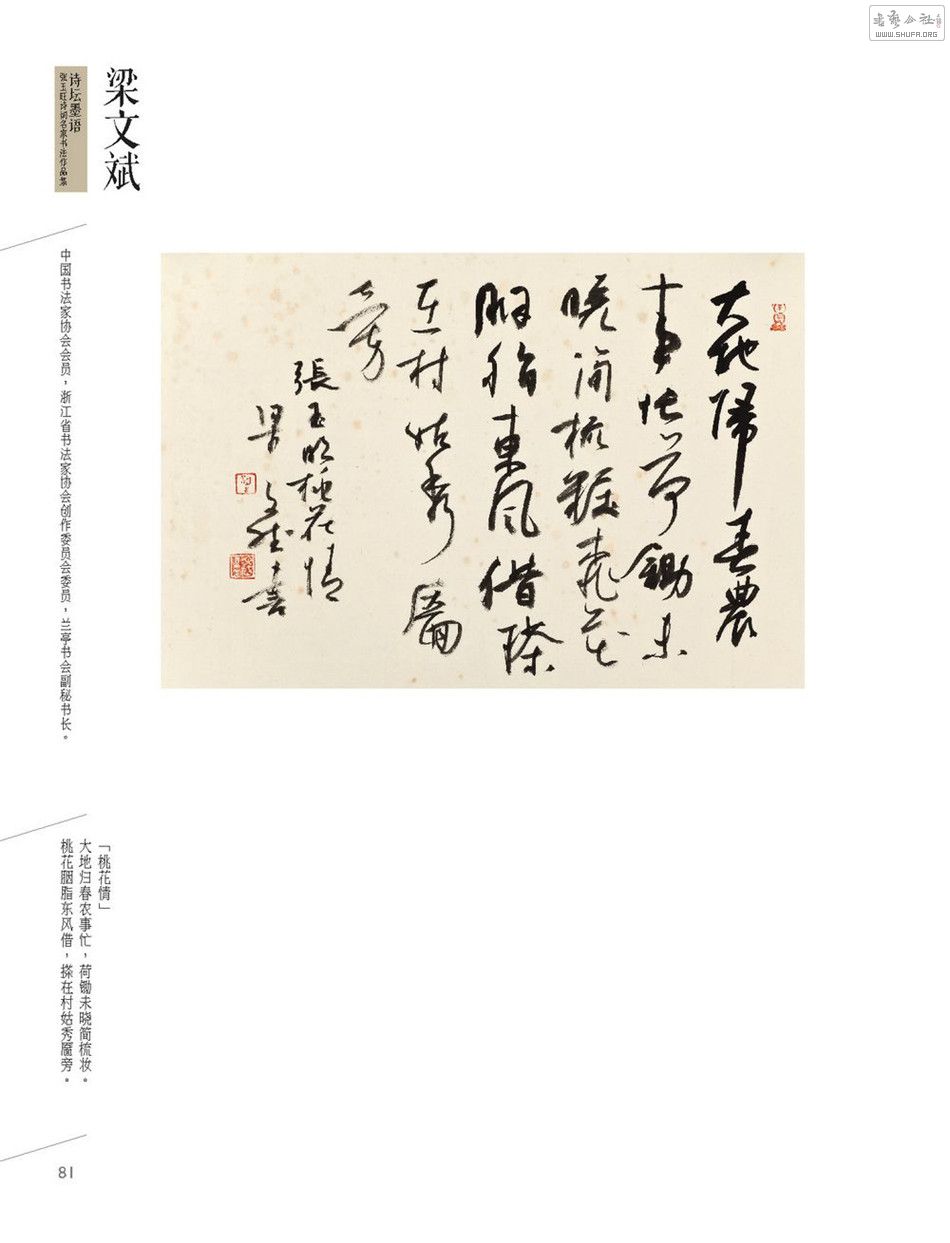 WWW.SHUFA.ORG
梁文斌
诗坛墨语
张玉旺诗词名家书法作品集
中国书法家协会会员，浙江省书法家协会创作委员会委员，兰亭书会副秘书长。
大地歸春農
事忙荷鋤未
曉简梳粧桃花
胭脂東風借搽
在村姑秀靨
旁
張玉旺桃花情
梁文斌書
「桃花情」
大地归春农事忙，荷锄未晓简梳妆。
桃花胭脂东风借，搽在村姑秀靥旁。
81